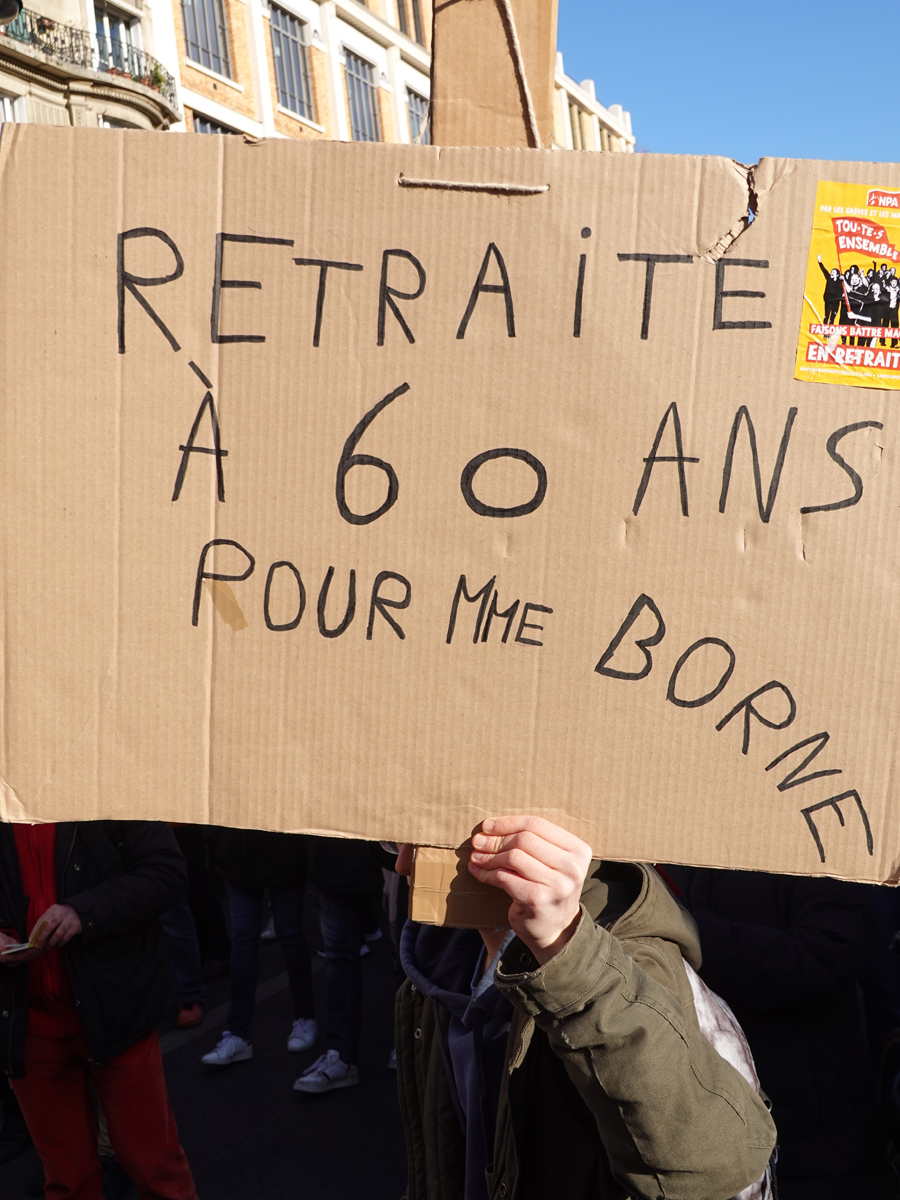 RETRAiTE
À 60 ANS
POUR MME BORNE
NPA
PAR LES GRÈVES ET LES
TOU·TE·S
ENSEMBLE
FAISONS BATTRE
EN RETRAIT